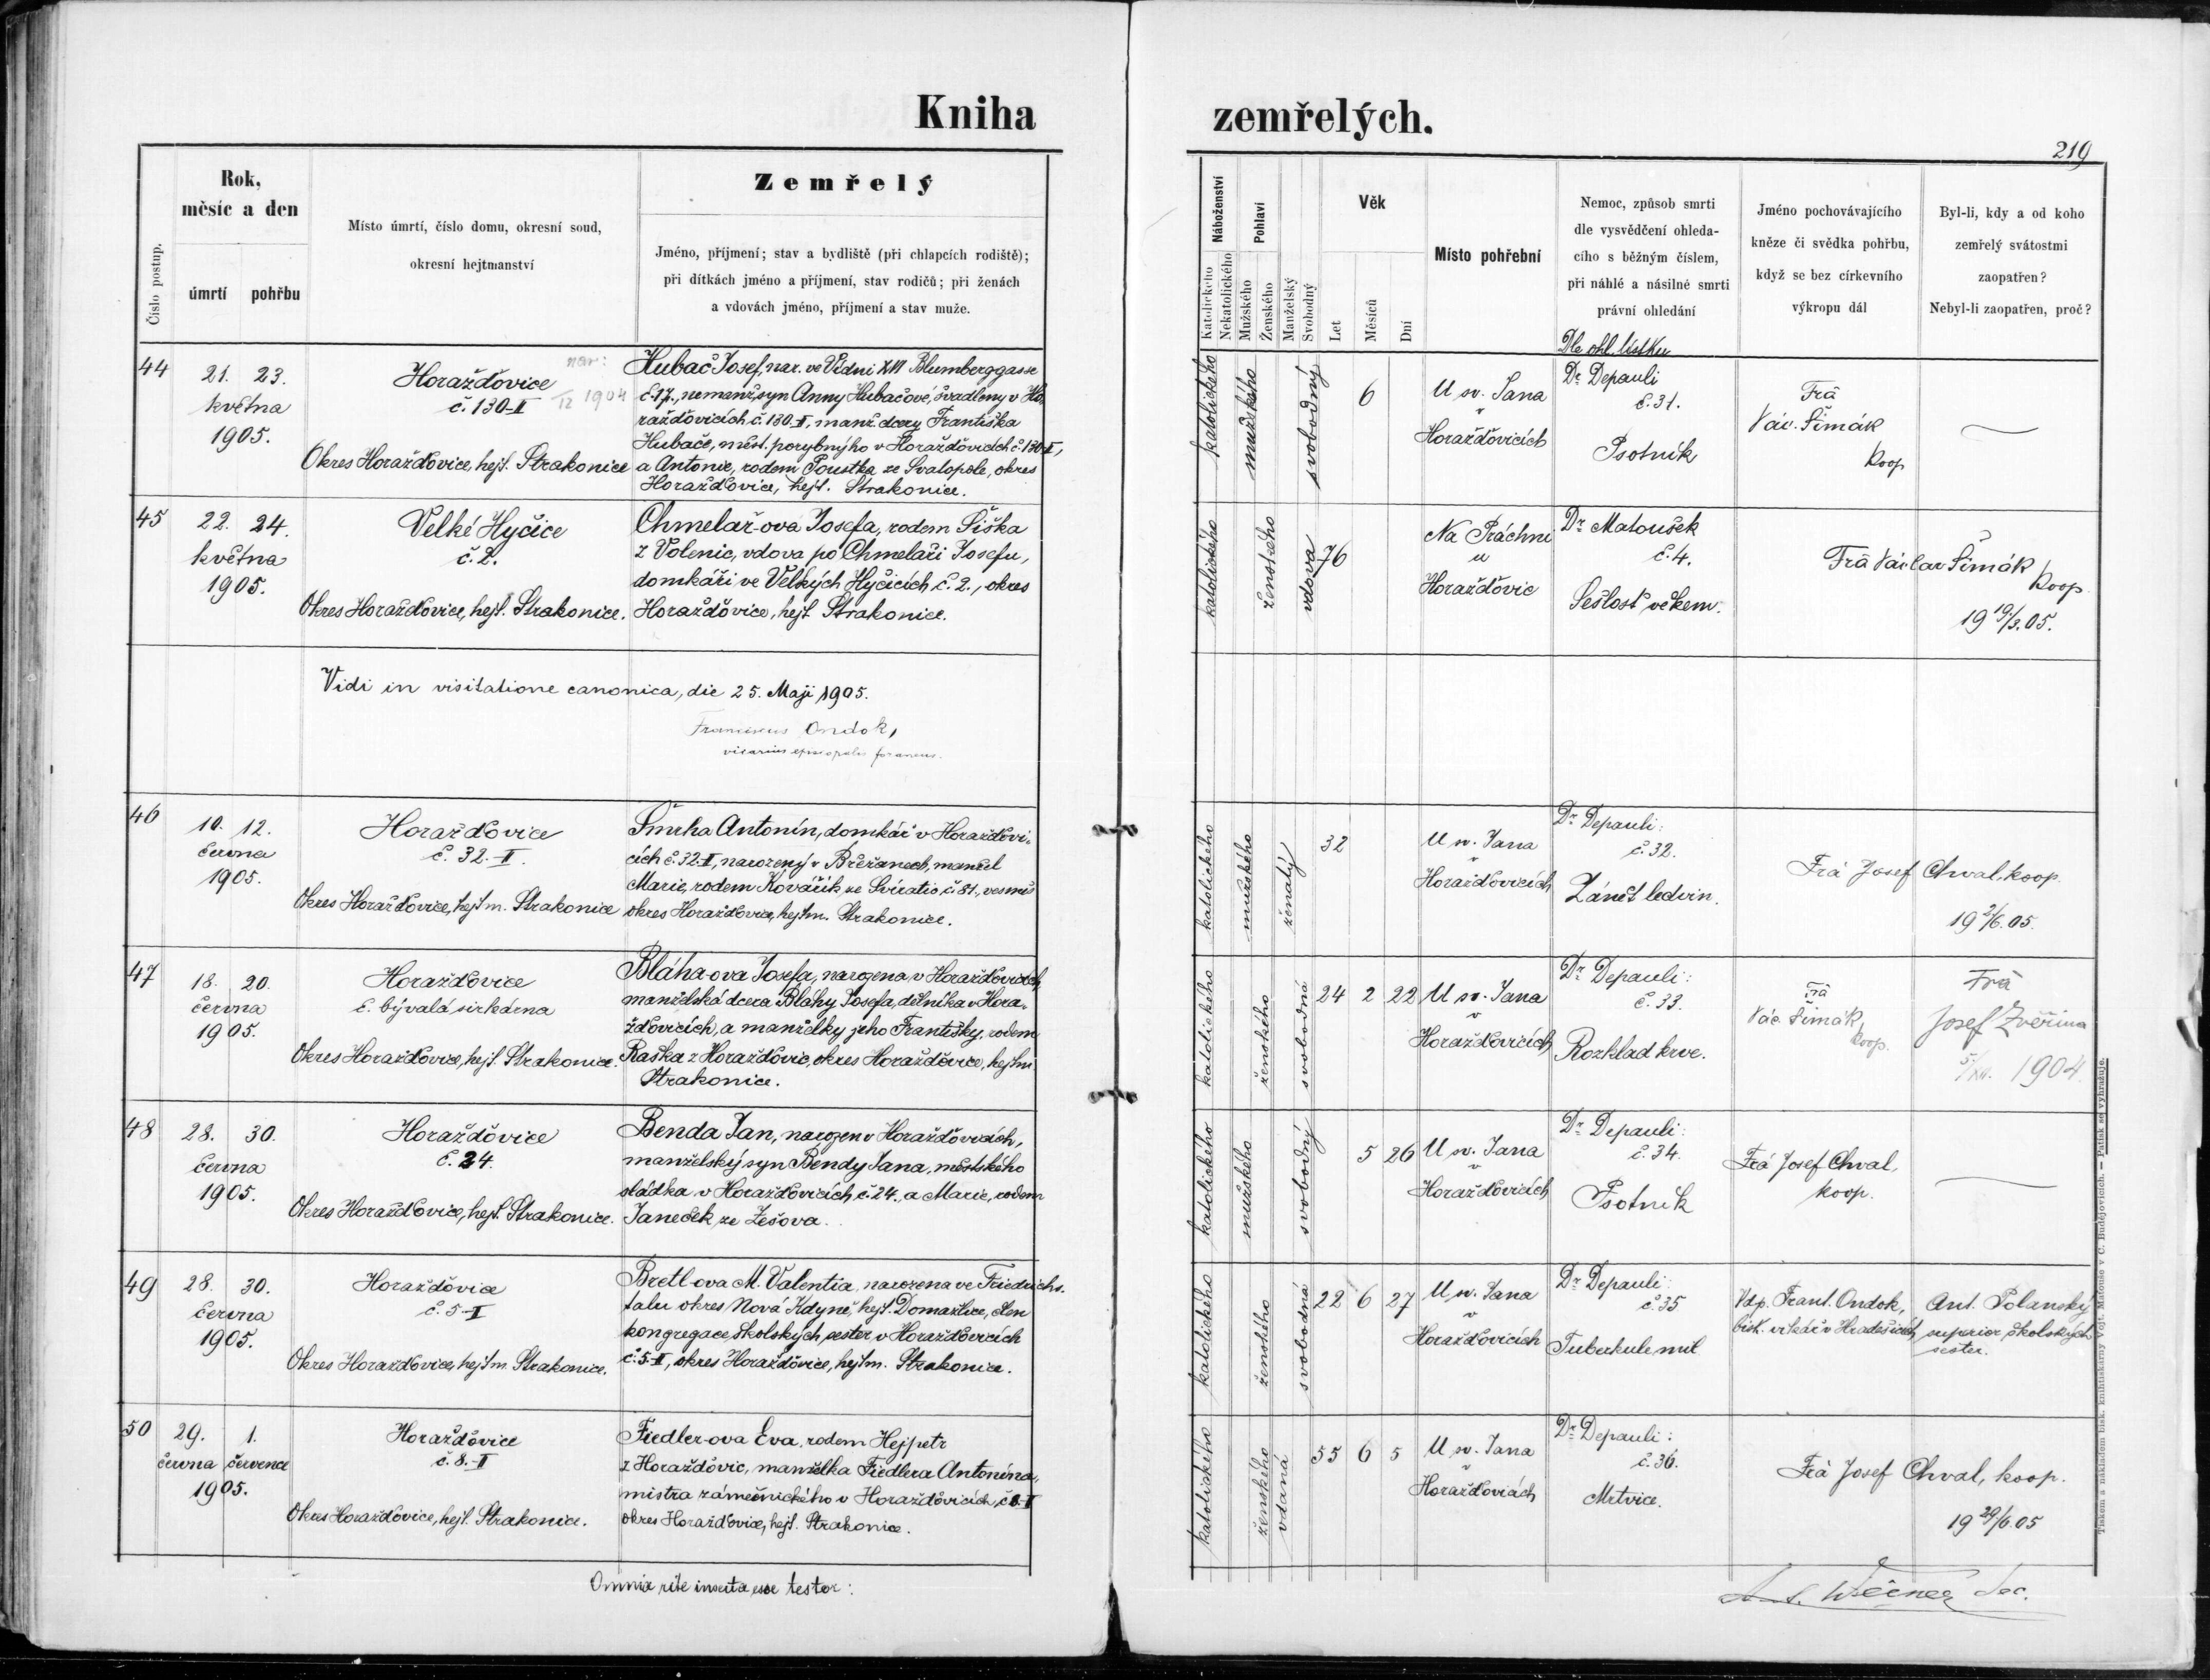 Kniha zemřelých.
219
Číslo postup.
Rok,
měsíc a den
úmrtí pohřbu
Místo úmrtí, číslo domu, okresní soud,
okresní hejtmanství
Zemřelý
Jméno, příjmení; stav a bydliště (při chlapcích rodiště);
při dítkách jméno a příjmení, stav rodičů; při ženách
a vdovách jméno, příjmení a stav muže.
Náboženství
Katolického
Nekatolického
Pohlaví
Mužského
Ženského
Manželský
Svobodný
Věk
Let
Měsíců
Dní
Místo pohřební
Nemoc, způsob smrti
dle vysvědčení ohleda-
cího s běžným číslem,
při náhlé a násilné smrti
právní ohledání
Jméno pochovávajícího
kněze či svědka pohřbu,
když se bez církevního
výkropu dál
Byl-li, kdy a od koho
zemřelý svátostmi
zaopatřen?
Nebyl-li zaopatřen, proč?
44
21. 23.
května
1905.
Horažďovice
č. 130-II
nar:
12 1904
Okres Horažďovice, hejt. Strakonice
Hubač Josef, nar. ve Vídni XVI Blumberggasse
č. 17., nemanž. syn Anny Hubačové, švadleny v Ho-
ražďovicích č. 130-II, manž. dcery Františka
Hubače, měst. porybného v Horažďovicích č. 130-II,
a Antonie, rodem Poustka ze Svatopole, okres
Horažďovice, hejt. Strakonice.
katolického
mužského
svobodný
6
U sv. Jana
v
Horažďovicích
Dle ohl. lístku
Dr. Depauli
č. 31.
Psotník
Frá
Vác. Šimák
koop
45
22. 24.
května
1905.
Velké Hyčice
č. 2.
Okres Horažďovice, hejt. Strakonice.
Chmelař-ova Josefa, rodem Šiška
z Volenic, vdova po Chmelaři Josefu,
domkáři ve Velkých Hyčicích č. 2., okres
Horažďovice, hejt. Strakonice.
katolického
ženského
vdova
76
Na Práchni
u
Horažďovic
Dr. Matoušek
č. 4.
Sešlosť věkem.
Frá Václav Šimák
koop.
19 19/3. 05.
Vidi in visitatione canonica, die 25. Maji 1905.
Franciscus Ondok,
vicarius episcopalis foraneus.
46
10. 12.
června
1905.
Horažďovice
č. 32.-II.
Okres Horažďovice, hejtm. Strakonice
Šmrha Antonín, domkář v Horažďovi-
cích č. 32-II, narozený v Břežanech, manžel
Marie, rodem Kovářík ze Svíratic č. 81., vesměs
okres Horažďovice, hejtm. Strakonice.
katolického
mužského
ženatý
32
U sv. Jana
v
Horažďovicích
Dr. Depauli:
č. 32.
Zánět ledvin.
Frá Josef Chval, koop.
19 2/6. 05.
47
18. 20.
června
1905.
Horažďovice
č. bývalá sirkárna
Okres Horažďovice, hejt. Strakonice.
Bláha-ova Josefa, narozena v Horažďovicích,
manželská dcera Bláhy Josefa, dělníka v Hora-
žďovicích, a manželky jeho Františky, rodem
Raška z Horažďovic, okres Horažďovice, hejtm.
Strakonice.
katolického
ženského
svobodná
24 2 22
U sv. Jana
v
Horažďovicích
Dr. Depauli:
č. 33.
Rozklad krve.
Frá
Vác. Šimák,
koop.
Frá
Josef Zvěřina
5/XII. 1904.
48
28. 30.
června
1905.
Horažďovice
č. 24.
Okres Horažďovice, hejt. Strakonice.
Benda Jan, narozen v Horažďovicích,
manželský syn Bendy Jana, městského
sládka v Horažďovicích č. 24., a Marie, rodem
Janeček ze Zešova.
katolického
mužského
svobodný
5 26
U sv. Jana
v
Horažďovicích
Dr. Depauli:
č. 34.
Psotník
Frá Josef Chval,
koop.
49
28. 30.
června
1905.
Horažďovice
č. 5-II
Okres Horažďovice, hejtm. Strakonice.
Bretl-ova M. Valentia, narozena ve Friedrichs-
talu okres Nová Kdyně, hejt. Domažlice, člen
kongregace školských sester v Horažďovicích
č. 5-II, okres Horažďovice, hejtm. Strakonice.
katolického
ženského
svobodná
22 6 27
U sv. Jana
v
Horažďovicích
Dr. Depauli:
č. 35
Tuberkule mil.
Vdp. Frant. Ondok,
bisk. vikář v Hradešicích
Ant. Polanský
superior školských
sester.
50
29. 1.
června července
1905.
Horažďovice
č. 8.-II
Okres Horažďovice, hejt. Strakonice.
Fiedler-ova Eva, rodem Hejpetr
z Horažďovic, manželka Fiedlera Antonína,
mistra zámečnického v Horažďovicích, č. 8-II
okres Horažďovice, hejt. Strakonice.
katolického
ženského
vdaná
55 6 5
U sv. Jana
v
Horažďovicích
Dr. Depauli:
č. 36.
Mrtvice.
Frá Josef Chval, koop.
19 29/6. 05
Omnia rite inserta esse testor:
Tiskem a nákladem bisk. knihtiskárny Vojt. Matouše v Č. Budějovicích. — Patisk se vyhražuje.